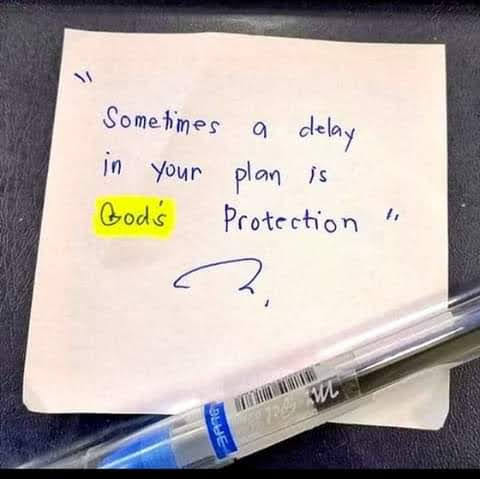 "
Sometimes a delay
in your plan is
God's Protection "